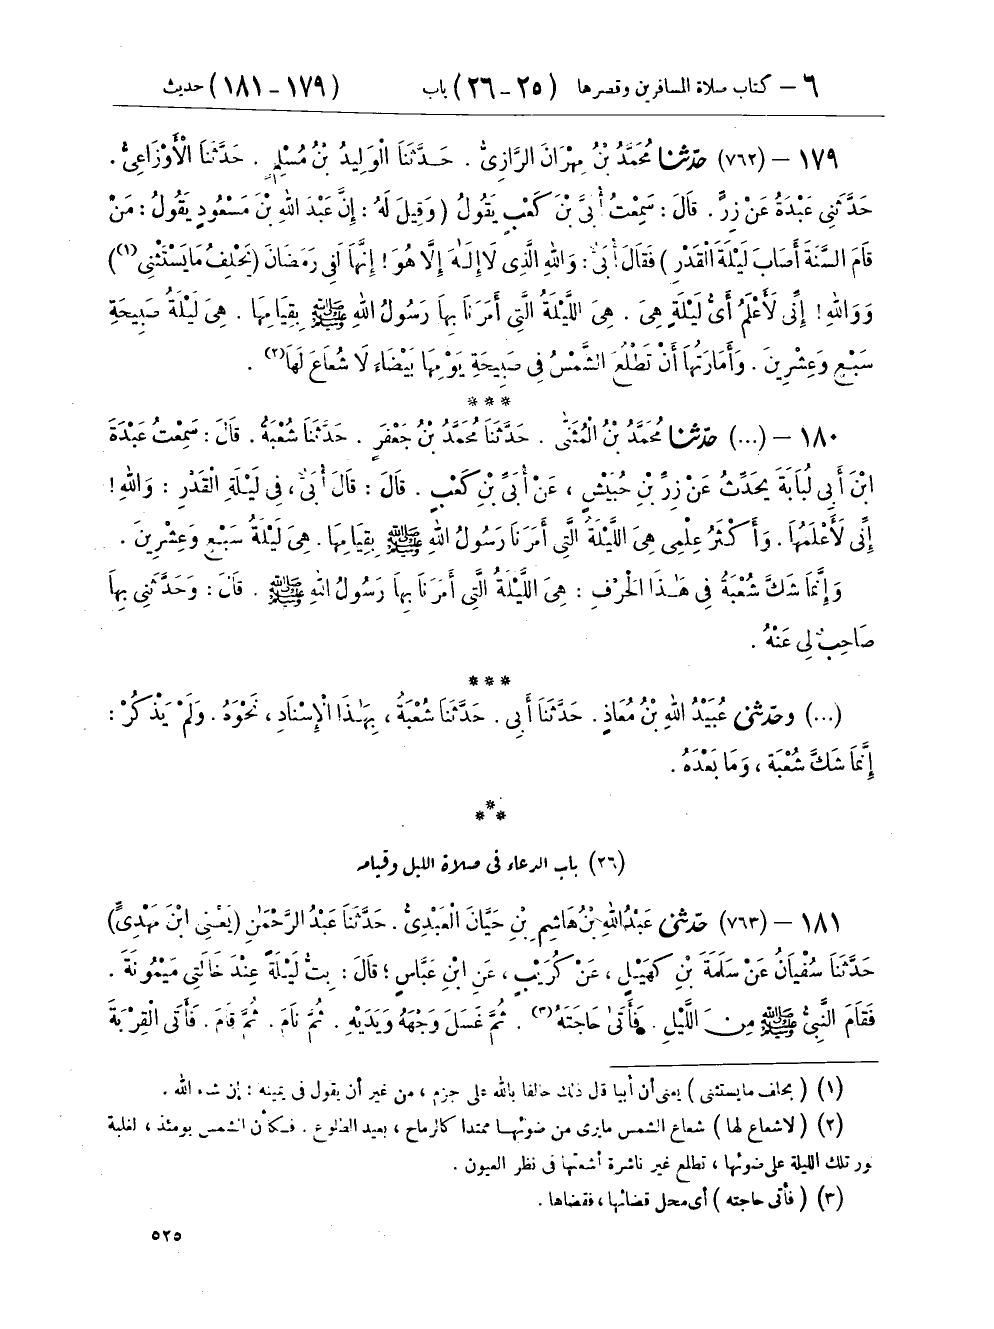 ٦ – كتاب صلاة المسافرين وقصرها (٢٥ – ٢٦) باب (١٧٩ – ١٨١) حديث
١٧٩ – (٧٦٢) حَدَّثَنَا مُحَمَّدُ بْنُ مِهْرَانَ الرَّازِيُّ . حَدَّثَنَا الْوَلِيدُ بْنُ مُسْلِمٍ . حَدَّثَنَا الْأَوْزَاعِيُّ .
حَدَّثَنِي عَبْدَةُ عَنْ زِرٍّ . قَالَ : سَمِعْتُ أُبَيَّ بْنَ كَعْبٍ يَقُولُ ( وَقِيلَ لَهُ : إِنَّ عَبْدَ اللهِ بْنَ مَسْعُودٍ يَقُولُ : مَنْ
قَامَ السَّنَةَ أَصَابَ لَيْلَةَ الْقَدْرِ ) فَقَالَ أُبَيٌّ : وَاللهِ الَّذِي لَا إِلَٰهَ إِلَّا هُوَ ! إِنَّهَا لَفِي رَمَضَانَ (يَحْلِفُ مَا يَسْتَثْنِي (١))
وَوَاللهِ ! إِنِّي لَأَعْلَمُ أَيُّ لَيْلَةٍ هِيَ . هِيَ اللَّيْلَةُ الَّتِي أَمَرَنَا بِهَا رَسُولُ اللهِ ﷺ بِقِيَامِهَا . هِيَ لَيْلَةُ صَبِيحَةِ
سَبْعٍ وَعِشْرِينَ . وَأَمَارَتُهَا أَنْ تَطْلُعَ الشَّمْسُ فِي صَبِيحَةِ يَوْمِهَا بَيْضَاءَ لَا شُعَاعَ لَهَا(٢) .
***
١٨٠ – (...) حَدَّثَنَا مُحَمَّدُ بْنُ الْمُثَنَّى . حَدَّثَنَا مُحَمَّدُ بْنُ جَعْفَرٍ . حَدَّثَنَا شُعْبَةُ . قَالَ : سَمِعْتُ عَبْدَةَ
ابْنَ أَبِي لُبَابَةَ يُحَدِّثُ عَنْ زِرِّ بْنِ حُبَيْشٍ ، عَنْ أُبَيِّ بْنِ كَعْبٍ . قَالَ : قَالَ أُبَيٌّ ، فِي لَيْلَةِ الْقَدْرِ : وَاللهِ !
إِنِّي لَأَعْلَمُهَا . وَأَكْثَرُ عِلْمِي هِيَ اللَّيْلَةُ الَّتِي أَمَرَنَا رَسُولُ اللهِ ﷺ بِقِيَامِهَا . هِيَ لَيْلَةُ سَبْعٍ وَعِشْرِينَ .
وَإِنَّمَا شَكَّ شُعْبَةُ فِي هَٰذَا الْحَرْفِ : هِيَ اللَّيْلَةُ الَّتِي أَمَرَنَا بِهَا رَسُولُ اللهِ ﷺ . قَالَ : وَحَدَّثَنِي بِهَا
صَاحِبٌ لِي عَنْهُ .
***
(...) وَحَدَّثَنِي عُبَيْدُ اللهِ بْنُ مُعَاذٍ . حَدَّثَنَا أَبِي . حَدَّثَنَا شُعْبَةُ ، بِهَٰذَا الْإِسْنَادِ ، نَحْوَهُ . وَلَمْ يَذْكُرْ :
إِنَّمَا شَكَّ شُعْبَةُ ، وَمَا بَعْدَهُ .
***
(٢٦) باب الدعاء فى صلاة الليل وقيامه
١٨١ – (٧٦٣) حَدَّثَنِي عَبْدُ اللهِ بْنُ هَاشِمِ بْنِ حَيَّانَ الْعَبْدِيُّ . حَدَّثَنَا عَبْدُ الرَّحْمَٰنِ (يَعْنِي ابْنَ مَهْدِيٍّ)
حَدَّثَنَا سُفْيَانُ عَنْ سَلَمَةَ بْنِ كُهَيْلٍ ، عَنْ كُرَيْبٍ ، عَنِ ابْنِ عَبَّاسٍ ؛ قَالَ : بِتُّ لَيْلَةً عِنْدَ خَالَتِي مَيْمُونَةَ .
فَقَامَ النَّبِيُّ ﷺ مِنَ اللَّيْلِ . فَأَتَى حَاجَتَهُ(٣) . ثُمَّ غَسَلَ وَجْهَهُ وَيَدَيْهِ . ثُمَّ نَامَ . ثُمَّ قَامَ . فَأَتَى الْقِرْبَةَ
(١) ( يحلف ما يستثنى ) يعنى أن أبيا قال ذلك حالفا بالله على جزم ، من غير أن يقول فى يمينه : إن شاء الله .
(٢) ( لا شعاع لها ) شعاع الشمس ما يرى من ضوئها ممتدا كالرماح ، بعيد الطلوع . فكأن الشمس يومئذ ، لغلبة
نور تلك الليلة على ضوئها ، تطلع غير ناشرة أشعتها فى نظر العيون .
(٣) ( فأتى حاجته ) أى محل قضائها ، فقضاها .
٥٢٥